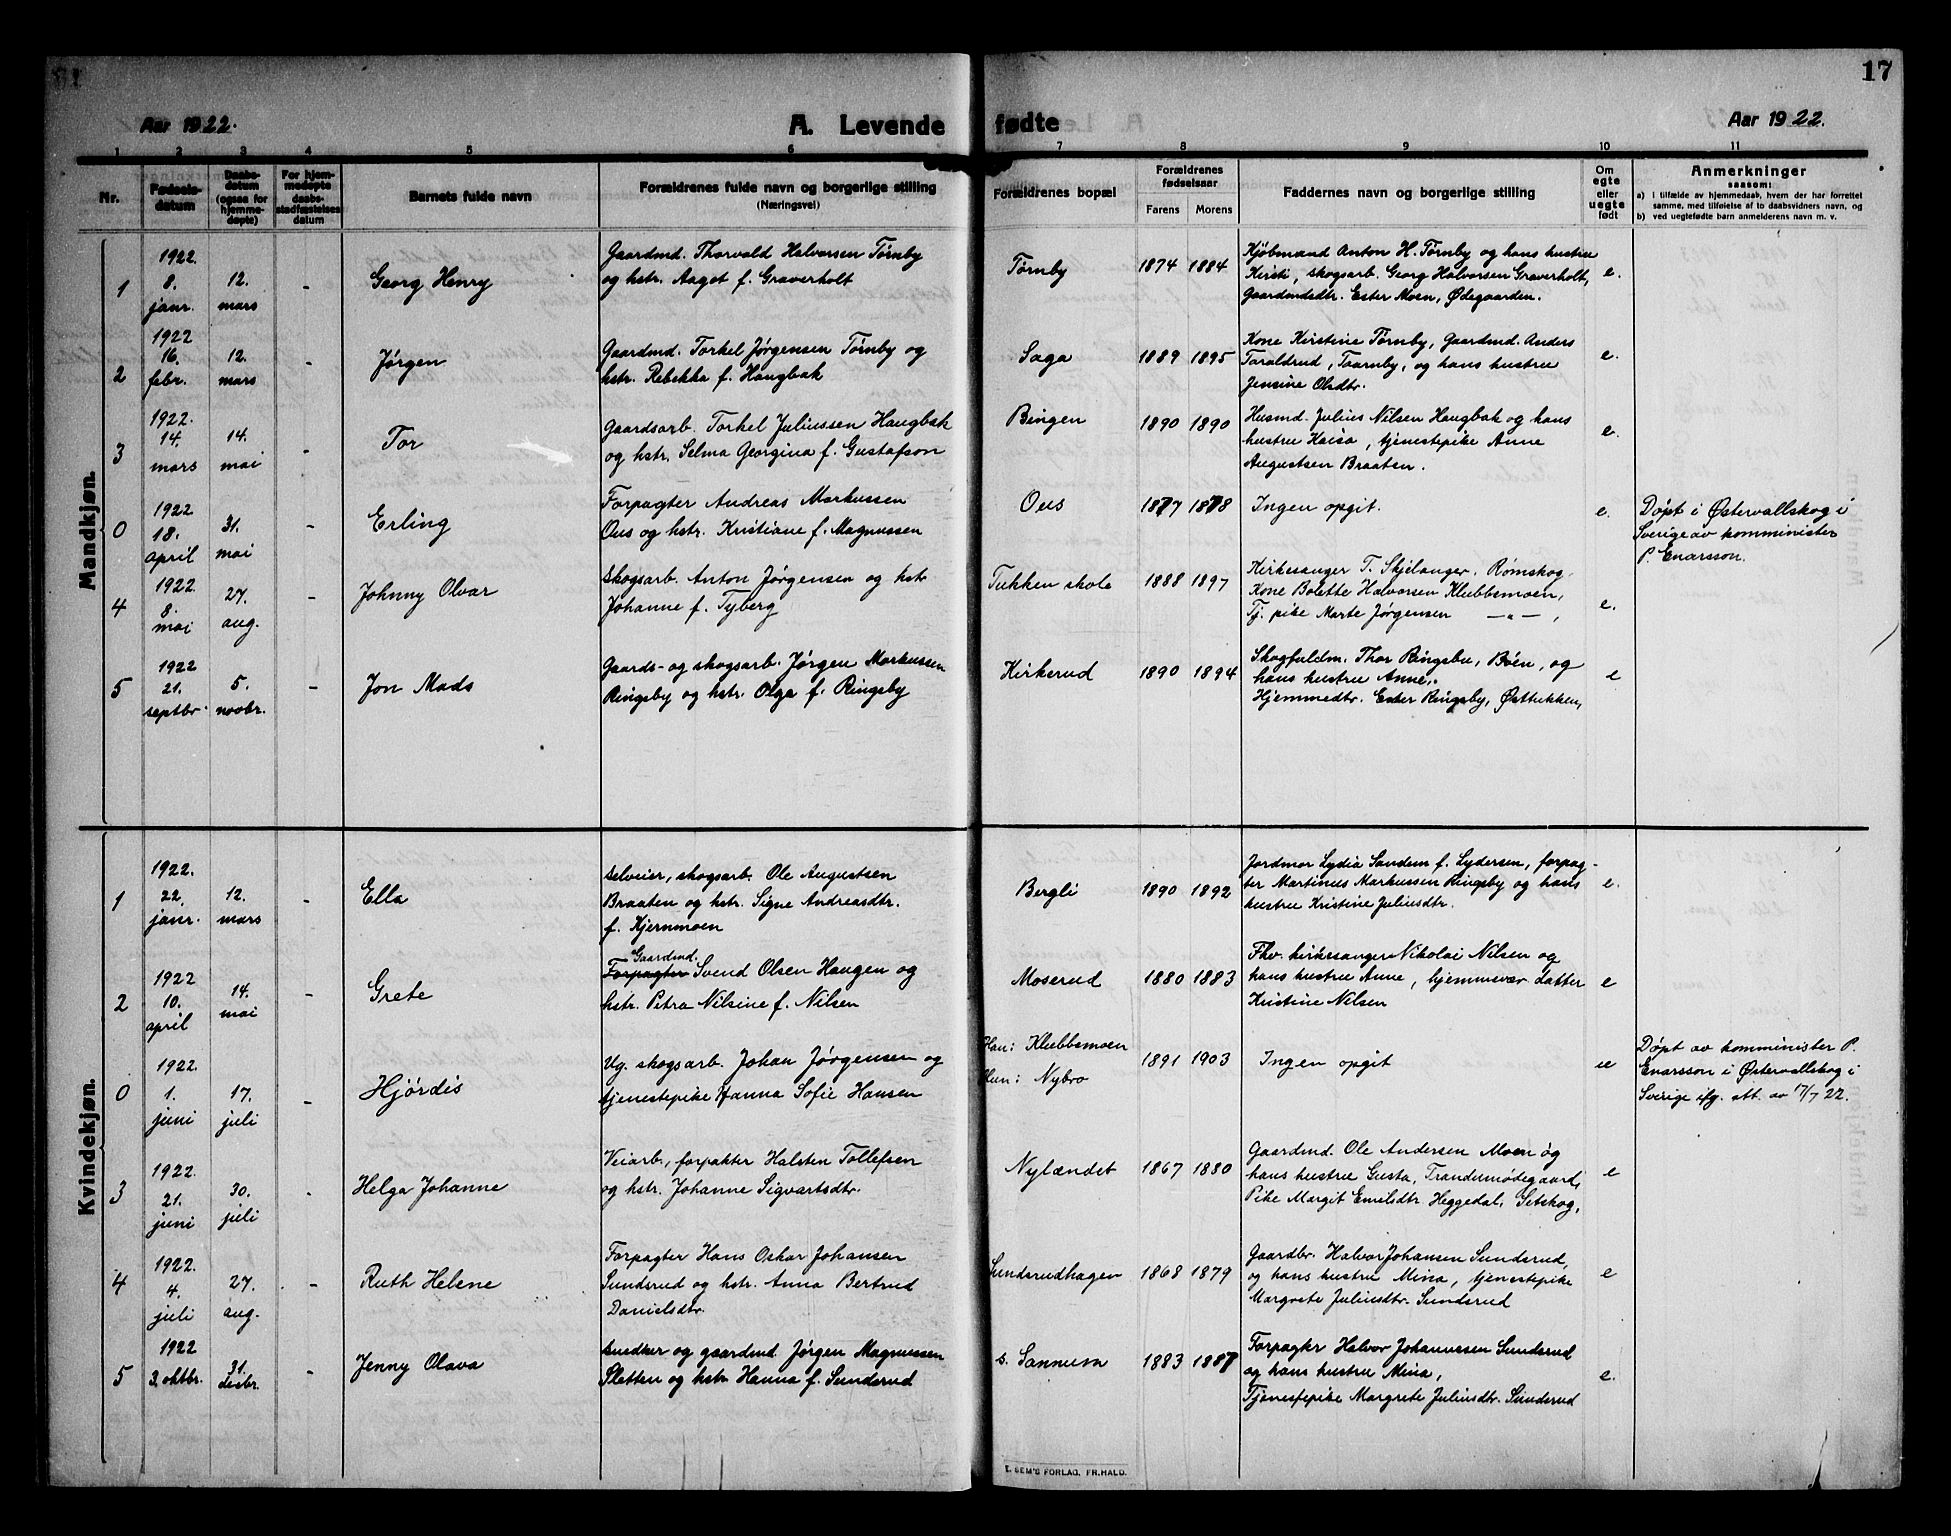 17
Aar 1922.
A. Levende
fødte
Aar 1922.
1 2 3 4 5 6 7 8 9 10 11
Nr.
Fødsels-
datum
Daabs-
datum
(ogsaa for
hjemme-
døpte)
For hjem-
medøpte
daabs-
stadfæstelses
datum
Barnets fulde navn
Forældrenes fulde navn og borgerlige stilling
(Næringsvei)
Forældrenes bopæl
Forældrenes
fødselsaar
Farens Morens
Faddernes navn og borgerlige stilling
Om
egte
eller
uegte
født
Anmerkninger
saasom:
a) i tilfælde av hjemmedaab, hvem der har forrettet
samme, med tilføielse af to daabsvidners navn, og
b) ved uegtefødte barn anmelderens navn m. v.
Mandkjøn.
1
1922.
8.
janr.
12.
mars
-
Georg Henry
Gaardmd. Thorvald Halvorsen Tørnby
og hstr. Aagot f. Graverholt
Tørnby
1874 1884
Kjøbmand Anton H. Tørnby og hans hustru
Kirsti, skogsarb. Georg Halvorsen Graverholt,
Gaardmdsdtr. Ester Moen, Ødegaarden.
e.
2
1922
16.
febr.
12.
mars
-
Jørgen
Gaardmd. Torkel Jørgensen Tørnby og
hstr. Rebekka f. Haugbak
Saga
1889 1895
Kone Kirstine Tørnby, Gaardmd. Anders
Taraldrud, Taarnby, og hans hustru
Jensine Olsdtr.
e.
3
1922.
14.
mars
14.
mai
-
Tor
Gaardsarb. Torkel Juliussen Haugbak
og hstr. Selma Georgina f. Gustafson
Bingen
1890 1890
Husmd. Julius Nilsen Haugbak og hans
hustru Kaisa, tjenestepike Anne
Augustsen Braaten.
e.
0
1922
18.
april
31.
mai
-
Erling
Forpagter Andreas Markussen
Ous og hstr. Kristiane f. Magnussen
Ous
1877 1878
Ingen opgit.
e.
Døpt i Østervallskog i
Sverige av komminister
P. Enarsson.
4
1922.
8.
mai
27.
aug.
-
Johnny Olvar
Skogsarb. Anton Jørgensen og hstr
Johanne f. Tyberg
Tukken skole
1888 1897
Kirkesanger T. Skjelanger. Rømskog,
Kone Bolette Halvorsen Klubbsmoen,
Tj. pike Marte Jørgensen — „ — ,
e.
5
1922
21.
septbr.
5.
novbr.
-
Jon Mads
Gaards- og skogsarb. Jørgen Markussen
Ringsby og hstr. Olga f. Ringsby
Kirkerud
1890 1894
Skogfuldm. Thor Ringsbu, Böen, og
hans hustru Anne,
Hjemmedtr. Ester Ringsby, Østtukken,
e
Kvindekjøn.
1
1922.
22.
janr.
12.
mars
-
Ella
Selveier, skogsarb. Ole Augustsen
Braaten og hstr. Signe Andreasdtr.
f. Kjernmoen
Bergli
1890 1892
Jordmor Lydia Sandem f. Lydersen, forpag-
ter Martinus Markussen Ringsby og hans
hustru Kristine Juliusdtr.
e.
2
1922
10.
april
14.
mai
-
Grete
Gaardmd.
Forpagter Svend Olsen Haugen og
hstr. Petra Nilsine f. Nilsen
Moserud
1880 1883
Fhv. kirkesanger Nikolai Nilsen og
hans hustru Anne, hjemmevær. datter
Kristine Nilsen
e
0
1922.
1.
juni
17.
juli
-
Hjördis
Ug. skogsarb. Johan Jørgensen og
tjenestepike Hanna Sofie Hansen
Han: Klubbsmoen
Hun: Nybro
1891 1903
Ingen opgit
ue
Døpt av komminister P.
Enarsson i Østervallskog i
Sverige ifg. att. av 17/7 22.
3
1922.
21.
juni
30.
juli
-
Helga Johanne
Veiarb., forpakter Halsten Tollefsen
og hstr. Johanne Sigvartsdtr.
Nylændet
1867 1880
Gaardmd. Ole Andersen Moen og
hans hustru Gusta, Trandemødegaard,
Pike Margit Emilsdtr. Heggedal, Setskog,
e
4
1922.
4.
juli
27.
aug.
-
Ruth Helene
Forpagter Hans Oskar Johansen
Sundsrud og hstr. Anna Bertrud
Danielsdtr.
Sundsrudhagen
1868 1879
Gaardbr. Halvor Johansen Sundsrud,
og hans hustru Mina, tjenestepike
Margrete Juliusdtr. Sundsrud
e
5
1922
3. oktbr.
31.
desbr.
-
Jenny Olava
Snedker og gaardmd. Jørgen Magnussen
Sletten og hstr Hanna f. Sundsrud
s. Sannum
1883 1887
Forpagtr Halvor Johannesen Sundsrud
og hans hustru Mina,
Tjenestepike Margrete Juliusdtr. Sundsrud
e.
E. SEM'S FORLAG, FR.HALD.